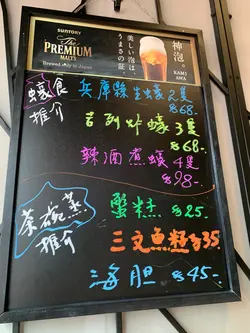 SUNTORY
The
PREMIUM
MALT'S
Brewed only in Japan
美しい泡は、
うまさの証。
神泡。
KAMI
AWA
蠔食
推介
兵庫縣生蠔2隻
$68.
吉列炸蠔3隻
$68-
辣酒煮蠔4隻
$98-
茶碗蒸
推介
蟹粉 $25-
三文魚籽$35
海胆 $45-